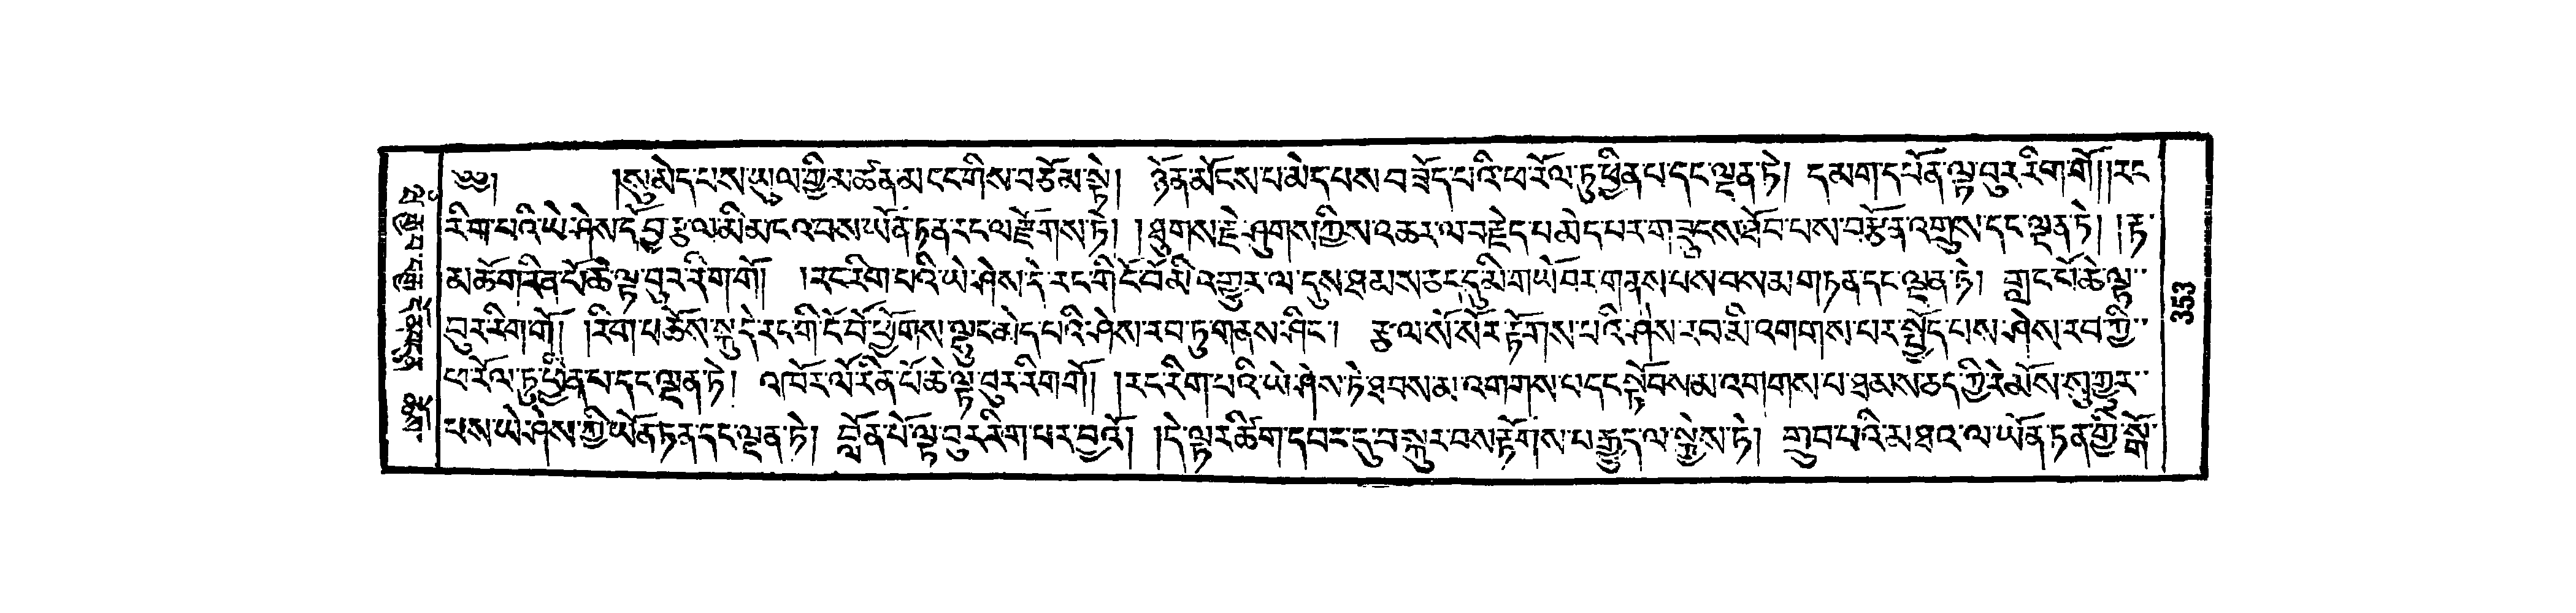 ༄༅། །སུ་མེད་པས་ཡུལ་གྱི་མཚན་མ་དང་གིས་བཙོམ་སྟེ། ཉོན་མོངས་པ་མེད་པས་བཟོད་པའི་ཕ་རོལ་ཏུ་ཕྱིན་པ་དང་ལྡན་ཏེ། དམག་དཔོན་ལྟ་བུར་རིག་གོ། །རང
རིག་པའི་ཡེ་ཤེས་དེ་བྱ་རྩལ་མི་མངའ་བས་ཡོན་ཏན་རང་ལ་རྫོགས་ཏེ། །ཐུགས་རྗེ་ཤུགས་ཀྱིས་འཆར་ལ་བརྗེད་པ་མེད་པར་གཟུངས་ཐོབ་པས་བརྩོན་འགྲུས་དང་ལྡན་ཏེ། །རྟ་
མཆོག་རིན་པོ་ཆེ་ལྟ་བུར་རིག་གོ། །རང་རིག་པའི་ཡེ་ཤེས་དེ་རང་གི་ངོ་བོ་མི་འགྱུར་ལ་དུས་ཐམས་ཅད་དུ་མི་གཡོ་བར་གནས་པས་བསམ་གཏན་དང་ལྡན་ཏེ། གླང་པོ་ཆེ་ལྟ་
བུར་རིག་གོ། །རིག་པ་ཆོས་སྐུ་དེ་རང་གི་ངོ་བོ་ཕྱོགས་ལྷུང་མེད་པའི་ཤེས་རབ་ཏུ་གནས་ཤིང་། རྩལ་སོ་སོར་རྟོགས་པའི་ཤེས་རབ་མི་འགགས་པར་སྤྱོད་པས་ཤེས་རབ་ཀྱི་
ཕ་རོལ་ཏུ་ཕྱིན་པ་དང་ལྡན་ཏེ། འཁོར་ལོ་རིན་པོ་ཆེ་ལྟ་བུར་རིག་གོ། །རང་རིག་པའི་ཡེ་ཤེས་ཏེ་ཐབས་མ་འགགས་པ་དང་སྟོབས་མ་འགགས་པ་ཐམས་ཅད་ཀྱི་རེ་མོས་སུ་གྱུར་
པས་ཡེ་ཤེས་ཀྱི་ཡོན་ཏན་དང་ལྡན་ཏེ། བློན་པོ་ལྟ་བུར་རིག་པར་བྱའོ། །དེ་ལྟར་ཚིག་དབང་དུ་བསྐུར་བས་རྟོགས་པ་རྒྱུད་ལ་སྐྱེས་ཏེ། གྲུབ་པའི་མཐའ་ལ་ཡོན་ཏན་གྱི་སྒོ་